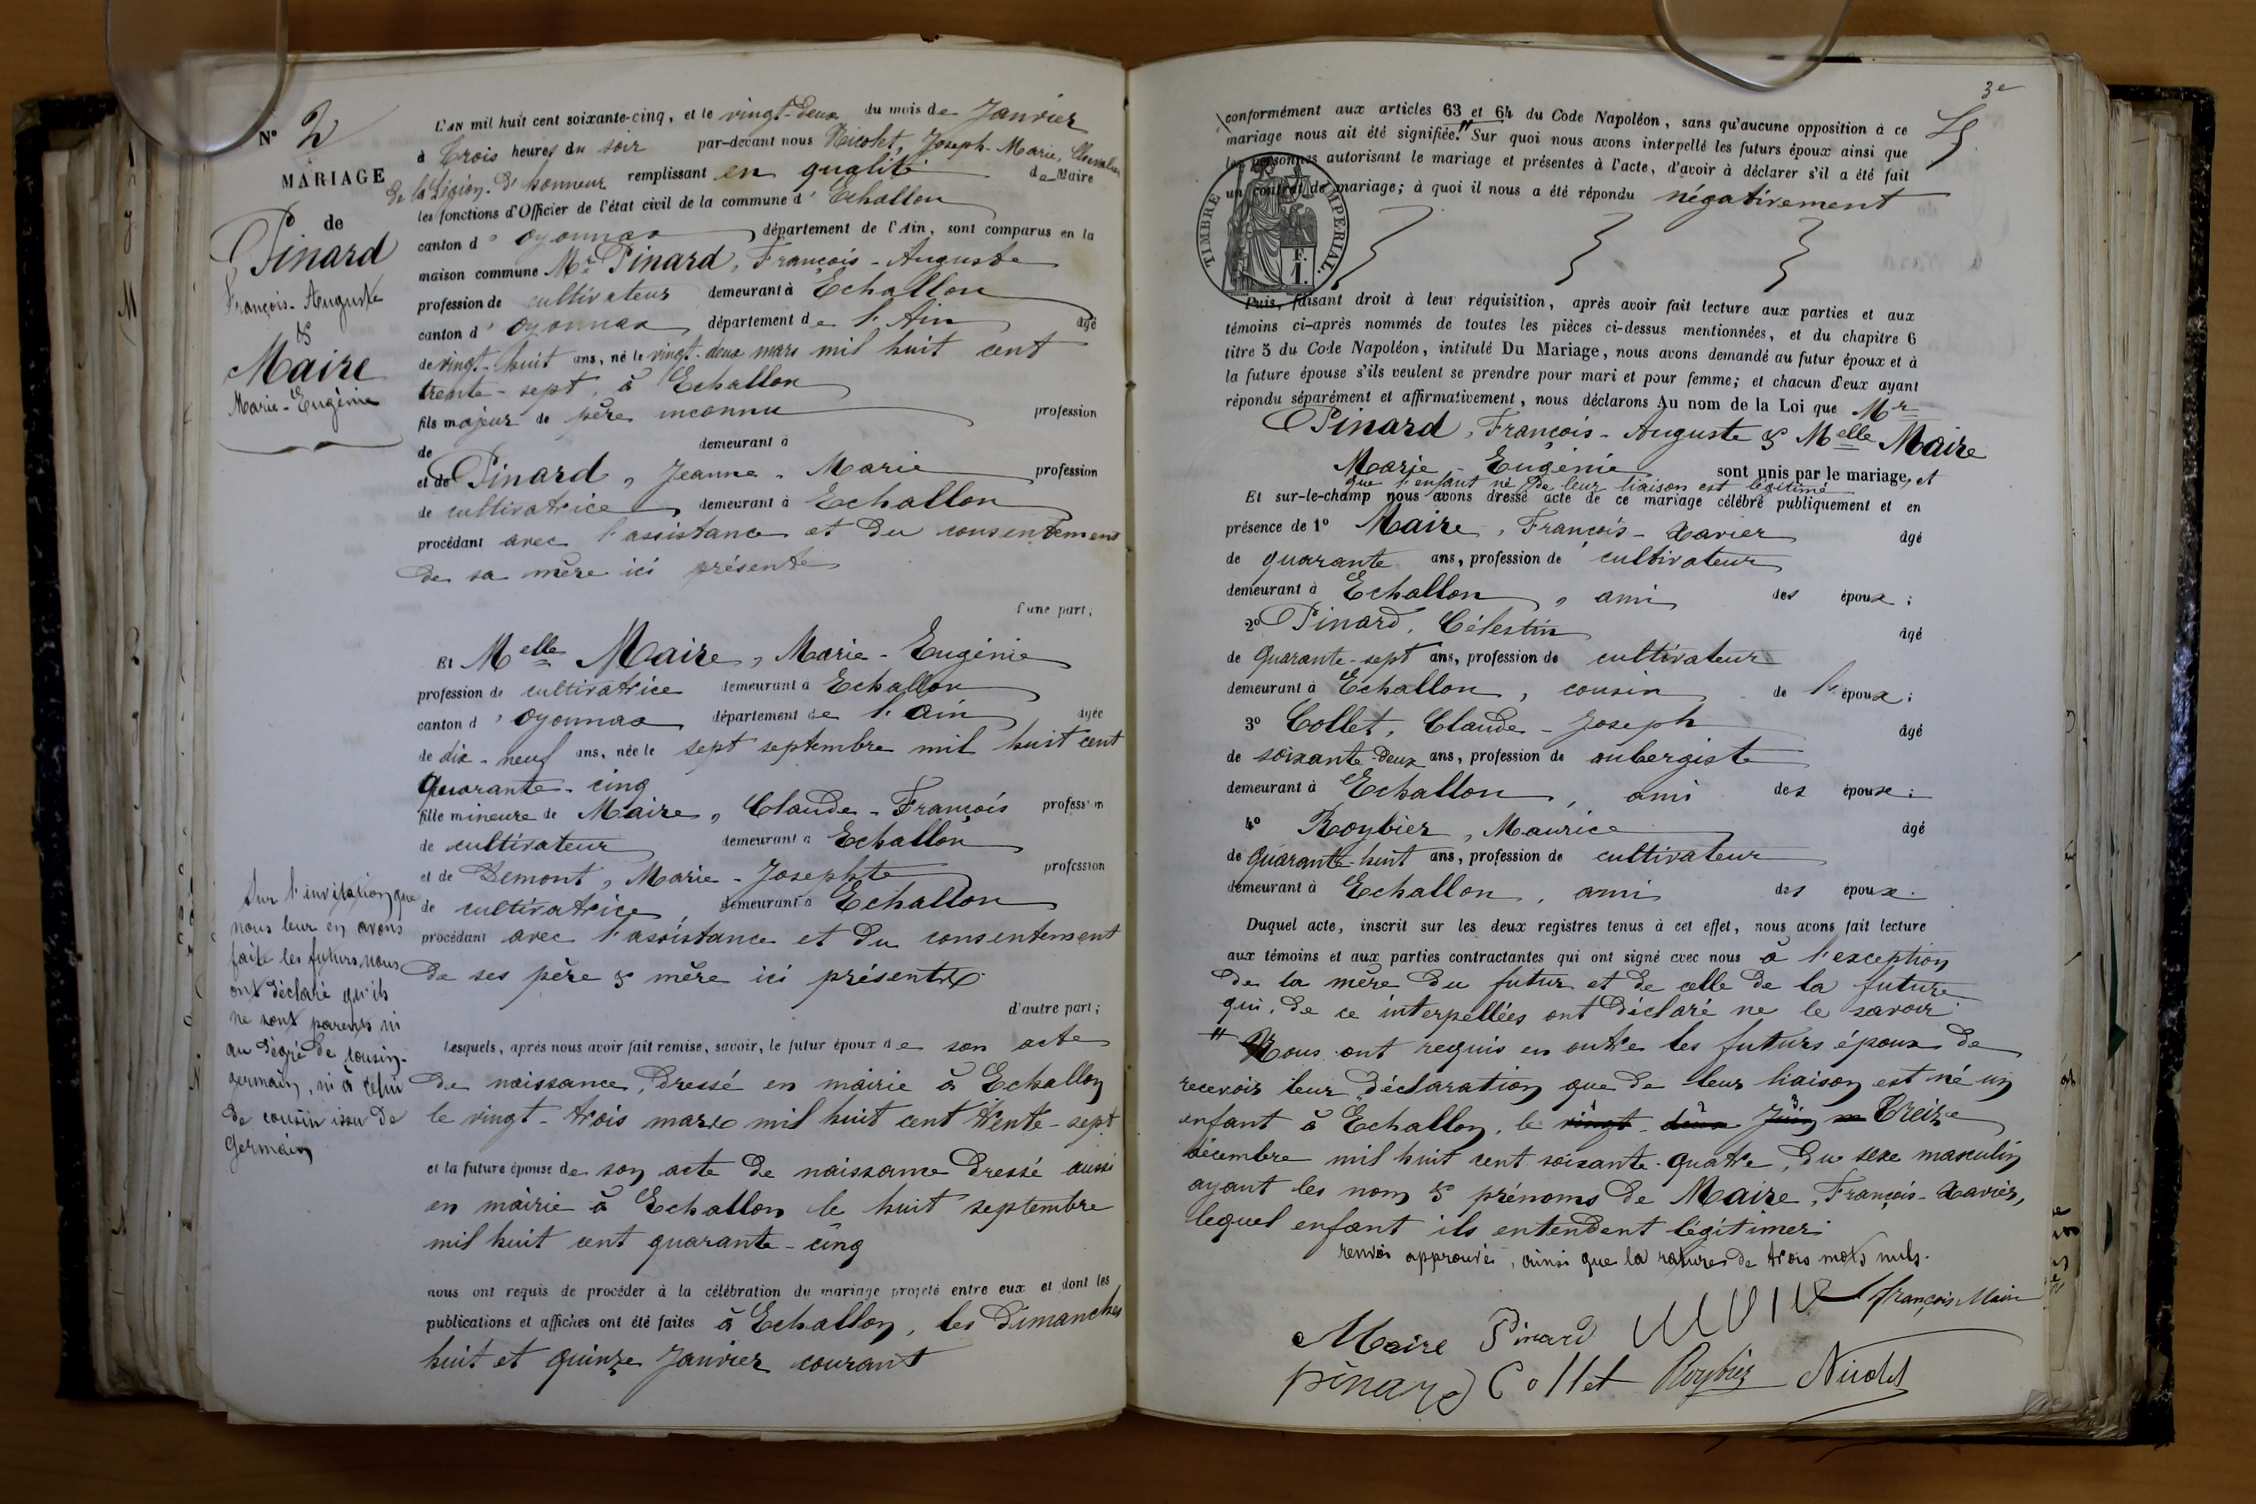 N° 2
MARIAGE
de
Pinard
François-Auguste
&
Maire
Marie-Eugénie
L'AN mil huit cent soixante-cinq, et le vingt-deux du mois de Janvier
à trois heures du soir par-devant nous Nicolet, Joseph-Marie, Chevalier
de la Légion d'honneur remplissant en qualité de Maire
les fonctions d'Officier de l'état civil de la commune d'Echallon
canton d'oyonnax département de l'Ain, sont comparus en la
maison commune Mr Pinard, François-Auguste
profession de cultivateur demeurant à Echallon
canton d'oyonnax département de l'Ain âgé
de vingt-huit ans, né le vingt-deux mars mil huit cent
trente-sept, à Echallon
fils majeur de père inconnu profession
de demeurant à
et de Pinard, Jeanne-Marie profession
de cultivatrice, demeurant à Echallon
procédant avec l'assistance et du consentement
de sa mère ici présente
d'une part;
Et Melle Maire, Marie-Eugénie
profession de cultivatrice demeurant à Echallon
canton d'oyonnax département de l'ain âgée
de dix-neuf ans, née le sept septembre mil huit cent
quarante-cinq
fille mineure de Maire, Claude-François profession
de cultivateur demeurant à Echallon
et de Demont, Marie-Josephte profession
de cultivatrice demeurant à Echallon
procédant avec l'assistance et du consentement
de ses père & mère ici présents
d'autre part;
Lesquels, après nous avoir fait remise, savoir, le futur époux de son acte
de naissance, dressé en mairie à Echallon
le vingt-trois mars mil huit cent trente-sept
et la future épouse de son acte de naissance dressé aussi
en mairie à Echallon le huit septembre
mil huit cent quarante-cinq
nous ont requis de procéder à la célébration du mariage projeté entre eux et dont les
publications et affiches ont été faites à Echallon, les dimanches
huit et quinze Janvier courant
Sur l'invitation que
nous leur en avons
faite les futurs nous
ont déclaré qu'ils
ne sont parents ni
au degré de cousin-
germain, ni à celui
de cousin issu de
germain
3e
conformément aux articles 63 et 64 du Code Napoléon, sans qu'aucune opposition à ce
mariage nous ait été signifiée." Sur quoi nous avons interpellé les futurs époux ainsi que
les personnes autorisant le mariage et présentes à l'acte, d'avoir à déclarer s'il a été fait
un contrat de mariage; à quoi il nous a été répondu négativement
TIMBRE IMPERIAL.
1 F.
Puis, faisant droit à leur réquisition, après avoir fait lecture aux parties et aux
témoins ci-après nommés de toutes les pièces ci-dessus mentionnées, et du chapitre 6
titre 5 du Code Napoléon, intitulé Du Mariage, nous avons demandé au futur époux et à
la future épouse s'ils veulent se prendre pour mari et pour femme; et chacun d'eux ayant
répondu séparément et affirmativement, nous déclarons Au nom de la Loi que Mr
Pinard, François-Auguste & Melle Maire
Marie-Eugénie sont unis par le mariage, et
que l'enfant né de leur liaison est légitimé
Et sur-le-champ nous avons dressé acte de ce mariage célébré publiquement et en
présence de 1° Maire, François-Xavier âgé
de quarante ans, profession de cultivateur
demeurant à Echallon, ami des époux;
2° Pinard, Célestin âgé
de Quarante-sept ans, profession de cultivateur
demeurant à Echallon, cousin de l'époux;
3° Collet, Claude-Joseph âgé
de soixante-deux ans, profession de aubergiste
demeurant à Echallon, ami des époux;
4° Roybier, Maurice âgé
de quarante-huit ans, profession de cultivateur
demeurant à Echallon, ami des époux.
Duquel acte, inscrit sur les deux registres tenus à cet effet, nous avons fait lecture
aux témoins et aux parties contractantes qui ont signé avec nous à l'exception
de la mère du futur et de celle de la future
qui, de ce interpellées ont déclaré ne le savoir.
" Nous ont requis en outre les futurs époux de
recevoir leur déclaration que de leur liaison est né un
enfant à Echallon, le vingt-deux Juin treize
décembre mil huit cent soixante-quatre, du sexe masculin
ayant les nom & prénoms de Maire, François-Xavier,
lequel enfant ils entendent légitimer.
renvois approuvés, ainsi que la rature de trois mots nuls.
françois Maire
Maire Pinard
pinard Collet Roybier Nicolet